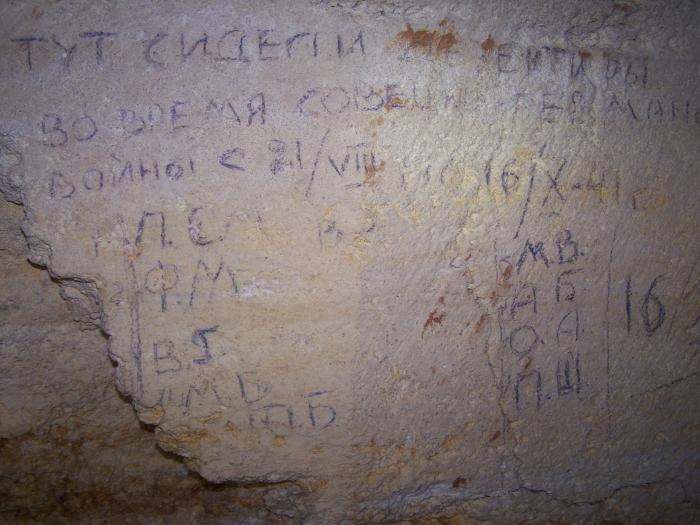 ТУТ СИДЕЛИ ДЕЗЕРТИРЫ
ВО ВРЕМЯ СОВЕЦКО-ГЕРМАН
ВОЙНЫ С 21/VIII ПО 16/X-41 г
П.С.
Ф.М
В.I
М.Б
П.Б
М.В.
А Б
О.А.
П.Ш
16